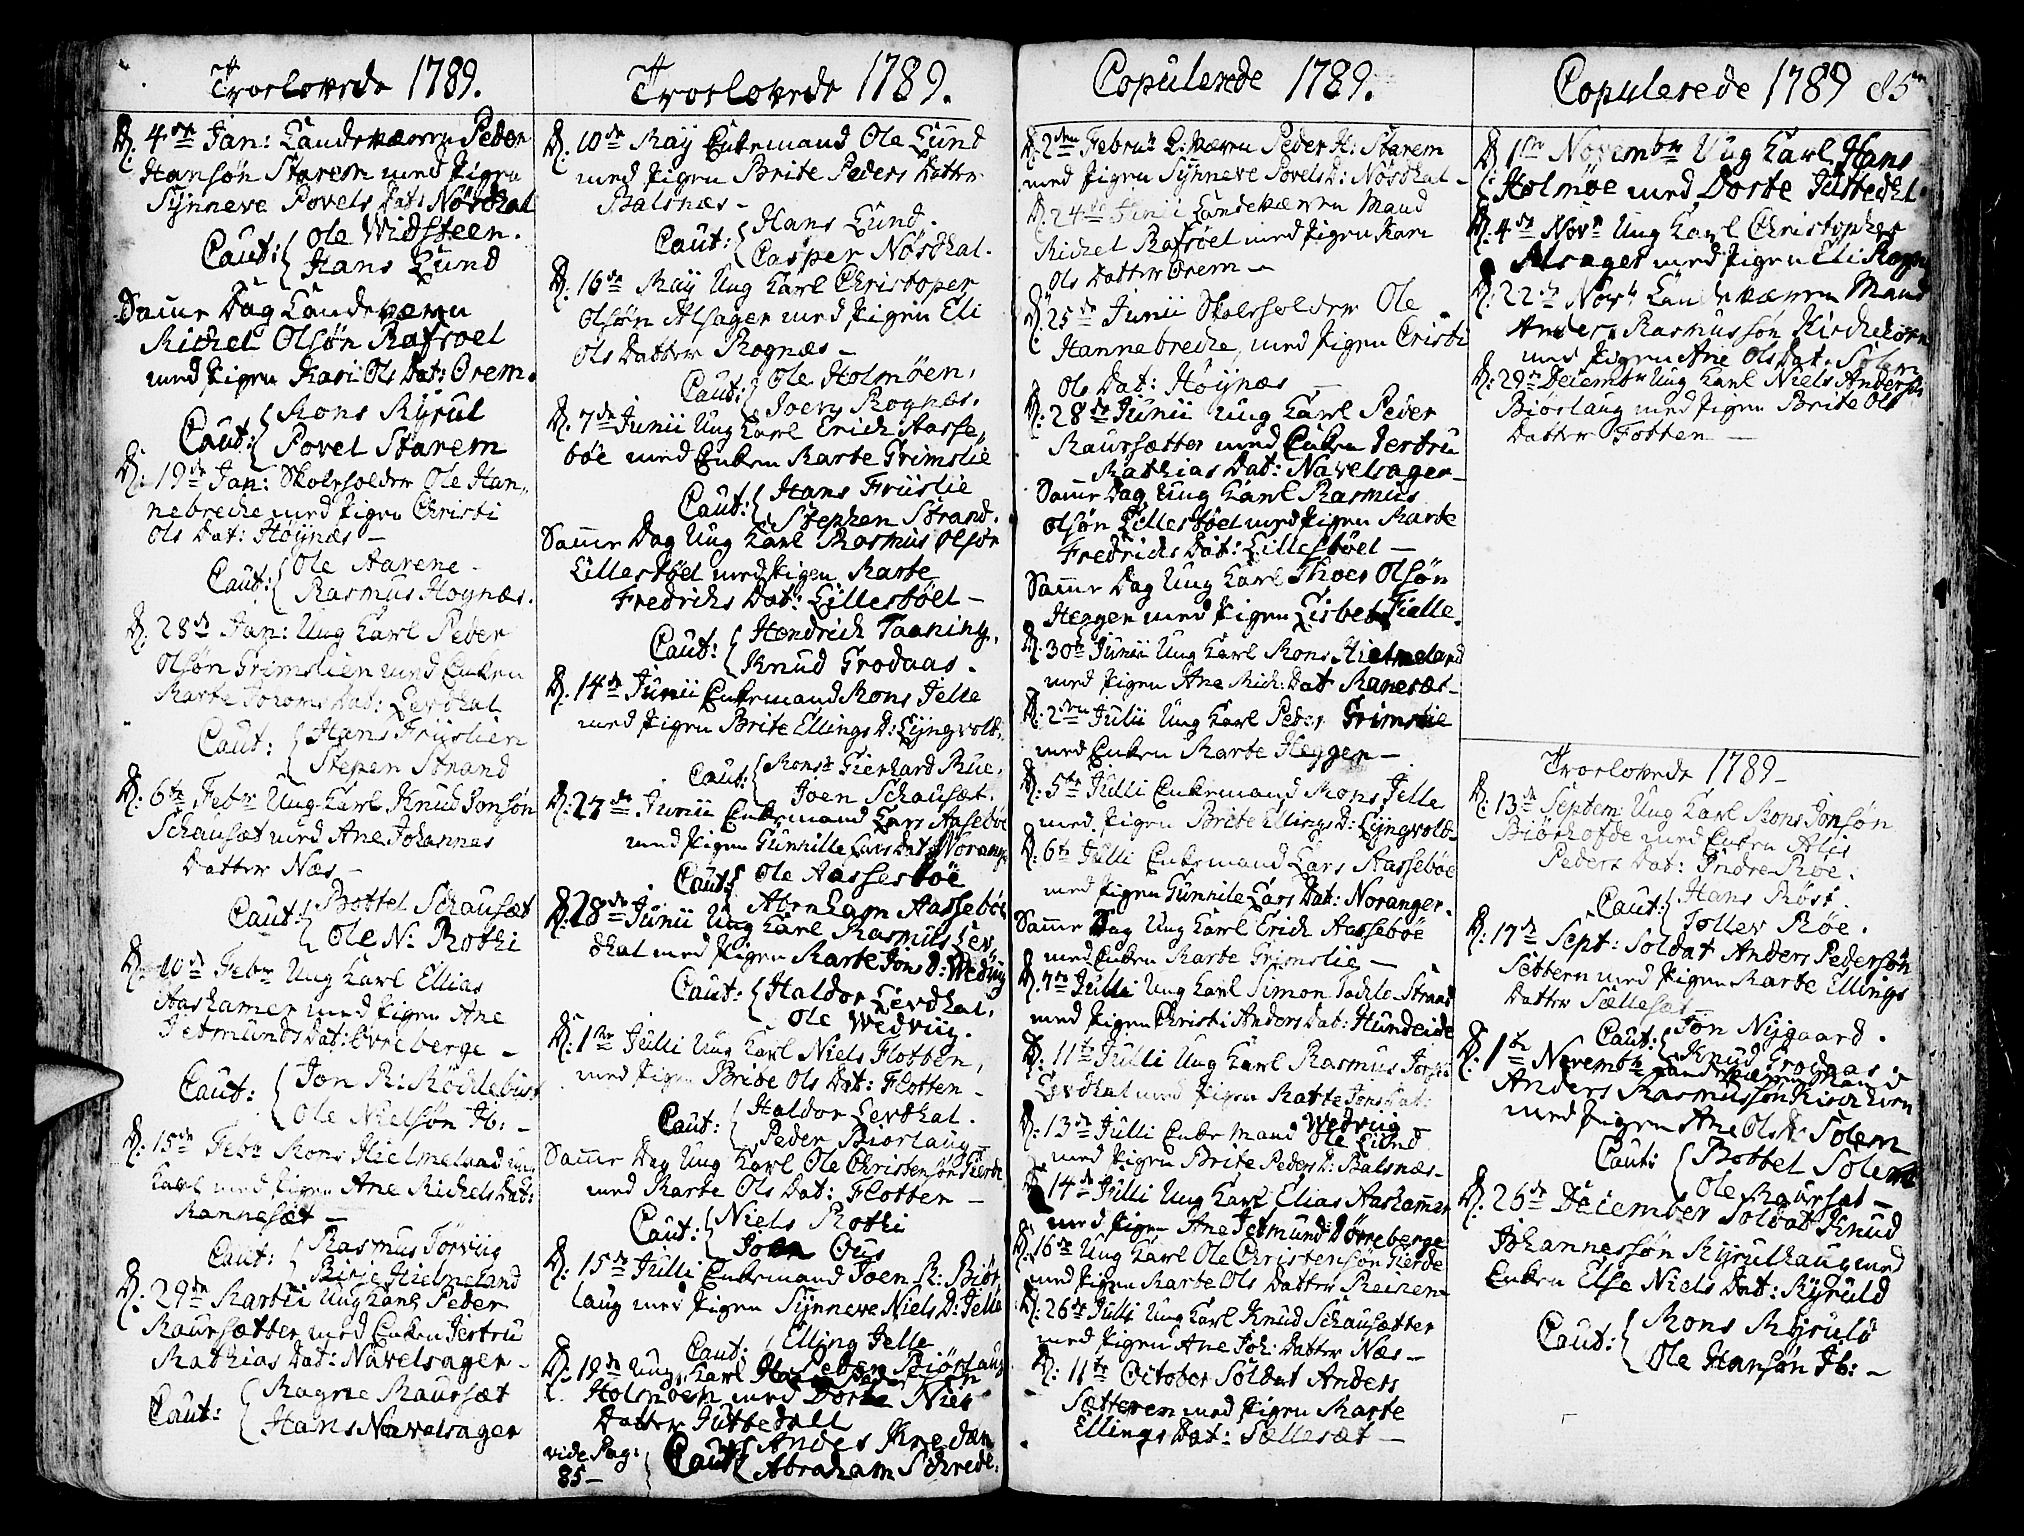 Troelovede 1789.
D. 4de Jan: Landeværn Peder
Hansøn Starem med Pigen
Synneve Povels Dat: Nøsdhal
Caut: Ole Widsteen.
Hans Lund
Samme Dag Landeværn
Michel Olsøn Rafsoel
med Pigen Kari Ols Dat: Orem.
Caut: Mons Myrul
Povel Starem
D: 19de Jan: Skoleholder Ole Han,,
nebreche med Pigen Christi
Ols Dat: Høynæs –
Caut: Ole Aarene.
Rasmus Hoynæs.
D: 28de Jan: Ung Karl Peder
Olsøn Grimslien med Enken
Marte Joroms Dat: Levdhal
Caut: Hans Friislien
Stepen Strand
D: 6te Febr Ung Karl Knud Jonsøn
Schausæt med Ane Johannes
Datter Næs –
Caut: Bottel Schausæt
Ole N: Rothi
D: 10de Febr Ung Karl Ellias
Aashamer med Pigen Ane
Jetmunds Dat: Øvreberge –
Caut: Jon R: Røddebust
Ole Nielsøn Ib: –
D: 15de Febr Mons Hielmelaad ung
Karl med Pigen Ane Michels Dat:
Mannesæt –
Caut: Rasmus Torviig
Birje Hielmeland
D: 29de Martii Ung Karl Peder
Maursætter med Enken Jertru
Mathias Dat: Navelsager –
Caut: Magne Maursæt
Hans Navelsager
Troelovede 1789.
D: 10de May Enkemand Ole Lund
med Pigen Brite Peders Datter
Balsnæs –
Caut: Hans Lund.
Casper Nøsdhal.
D: 16de May Ung Karl Christoper
Olsøn Alsager med Pigen Eli
Ols Datter Rognæs –
Caut: Ole Holmøen,
Joen Rognæs.
D. 7de Junii Ung Karl Erich Aasse,,
bøe med Enken Marte Grimslie
Caut: Hans Friislie
Stephen Strand.
Samme Dag Ung Karl Rasmus Olsøn
Lillestøel med Pigen Marte
Fredrichs Dat: Lillestøel –
Caut: Hendrich Taaning,
Knud Grodaas.
D: 14de Junii Enkemand Mons Jelle
med Pigen Brite Ellings D: Lyngvold.
Caut: Monsr Gierhard Mue,
Joen Schausæt.
D: 27de Junii Enkemand Lars Aasebøe
med Pigen Gunnille Lars Dat: Norang
Caut: Ole Aassesbøe
Abraham Aassebøe
D: 28de Junii Ung Karl Rasmus Lev,,
dhal med Pigen Marte Jons D: Wedviig
Caut: Haldor Levdhal,
Ole Wedviig.
D: 1ste Julli Ung Karl Niels Flotten,
med Pigen Brite Ols Dat: Flotten –
Caut: Haldor Levdhal.
Peder Biørlaug –
Samme Dag Ung Karl Ole Christensøn Gierde
med Marte Ols Dat: Flotten –
Caut: Niels Rothi
Joen Ous
D: 15de Julli Enkemand Joen R: Biør,,
laug med Pigen Synneve Niels D: Jelle
Caut: Elling Jelle
Peder Biørlaug
D: 18de Ung Karl Hans
Holmøen med Dorte Niels
Datter Juttedall
Caut: Andes Kredam
Abraham Schrede.
vide Pag:
85 –
Copulerede 1789.
D: 2den Febru L: værn Peder H: Starem
med Pigen Synneve Povels D: Nøsdhal –
D: 24de Junii Landeværn Mand
Michel Rafsøel med Pigen Kari
Ols Datter Orem –
D: 25de Junii Skoleholder Ole
Hannebreche, med Pigen Cristi
Ols Dat: Høynæs –
D: 28de Junii Ung Karl Peder
Maursætter med Enken Jertru
Mathias Dat: Navelsager –
Samme Dag Ung Karl Rasmus
Olsøn Lillestøel med Pigen Marte
Fredrichs Dat: Lillestøel –
Samme Dag Ung Karl Thoer Olsøn
Heggen med Pigen Lisbet Fialle.
D: 30te Junii Ung Karl Mons Hielmeland
med Pigen Ane Mich: Dat Manesæt –
D: 2den Julii Ung Karl Peder Grimslie
med Enken Marte Heggen –
D: 5te Julli Enkemand Mons Jelle
med Pigen Brite Ellings D: Lyngvold –
D: 6te Julli Enkemand Lars Aassebøe
med Pigen Gunnile Lars Dat: Noranger.
Samme Dag Ung Karl Erich Aassebøe
med Enken Marte Grimslie –
D: 7de Julli Ung Karl Simon Tachlo Strand
med Pigen Christi Anders Dat: Hundeide
D: 11te Julli Ung Karl Rasmus Jonsøn
Levdhal med Pigen Matte Jons Dat:
Wedviig –
D: 13de Julli Enke Mand Ole Lund
med Pigen Brite Peders D: Balsnæs –
D: 14de Julli Ung Karl Elias Aashammer
med Pigen Ane Jetmunds D: Øvreberge
D: 16de Ung Karl Ole Christensøn Gierde
med Pigen Marte Ols Datter
D: 26de Julli Ung Karl Knud Schausætter
med Pigen Ane Joh: Datter Næs –
D: 11te October Soldat Anders
Sætteren med Pigen Marte
Ellings Dat: Sællesæt –
Copulerede 1789 85
D 1ste Novembr Ung Karl Hans
Holmøe med Dorte Justedhl.
D: 4de Novr Ung Karl Christopher
Alsager med Pigen Eli Rogn
D: 22de Novr Landeværen Mand
Anders Rasmussøn Kirchehorn
med Pigen Ane Ols Dat: Solem
D: 29de Decembr Ung Karl Niels Andersøn
Biørlaug med Pigen Brite Ols
Datter Fotten –
Troelovede 1789 –
D: 13de Septem Ung Karl Mons Jonsøn
Biørhofde med Enken Alis
Peders Dat: Indre Røe.
Caut: Hans Røst.
Tollev Røe.
D: 17de Sept: Soldat Anders Pedersøn
Settern med Pigen Marte Ellings
Datter Sællesæt –
Caut: Jon Nygaard.
Knud Grodaas.
D: 1te Novembr Landeværn Mand
Anders Rasmussøn Kirchhorn
med Pigen Ane Ols D: Solem
Caut: Bottel Solem
Ole Maursæt –
D: 26de December Soldat Knud
Johannessøn Myrulhaug med
Enken Else Niels Dat: Myruld
Caut: Mons Myruld
Ole Hansøn Ib: –